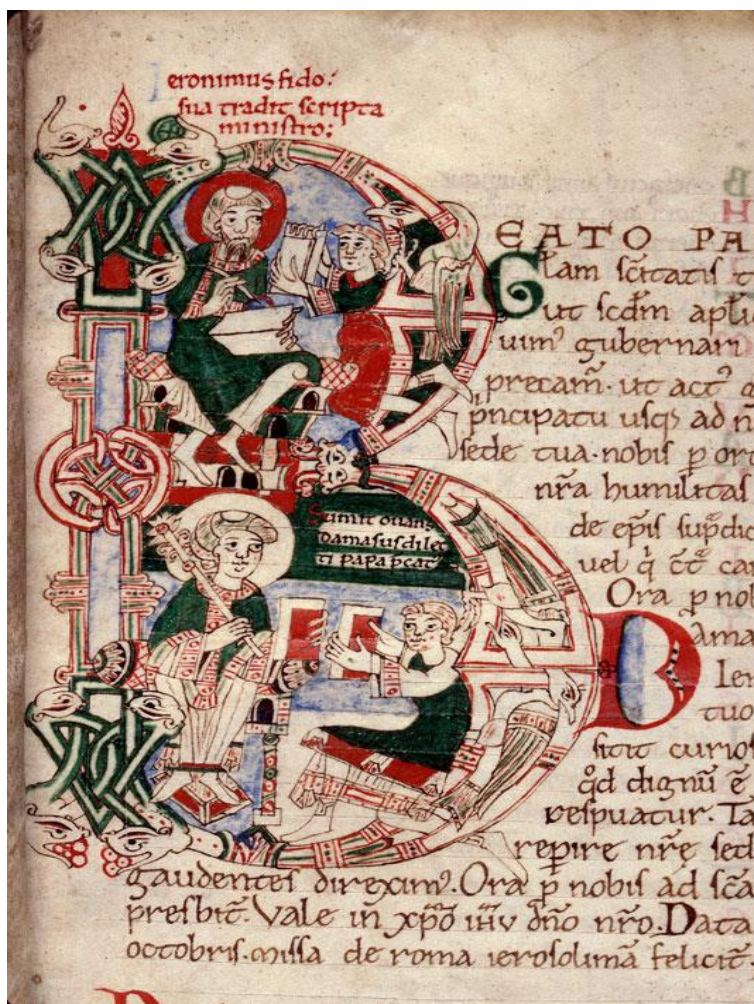 Ieronimus fido:
sua tradit scripta
ministro;
Sumit ouans
damasus dilec
ti papa p̄cat᷒
BEATO PA
Gl̄am sc̄itatis t
ut scd̄m apl̄i
uim᷒ gubernari
precam̄· ut act᷒ a
p̄ncipatu usq; ad n
sede tua·nobis p̄ ort
nr̄a humilitas
de ep̄is sup̄dic
uel
Ora p̄ nob
Dama
Ier
tuo
sitit curios
q̄d dignū ē
respuatur· Ta
rep̄ire nr̄ę sed
gaudentes direxim᷒. Ora p̄ nobis ad sc̄a
presbit̄. Vale in xp̄o ih̄u dn̄o nr̄o. Data
octobris· missa de roma ierosolimā felicit̄.